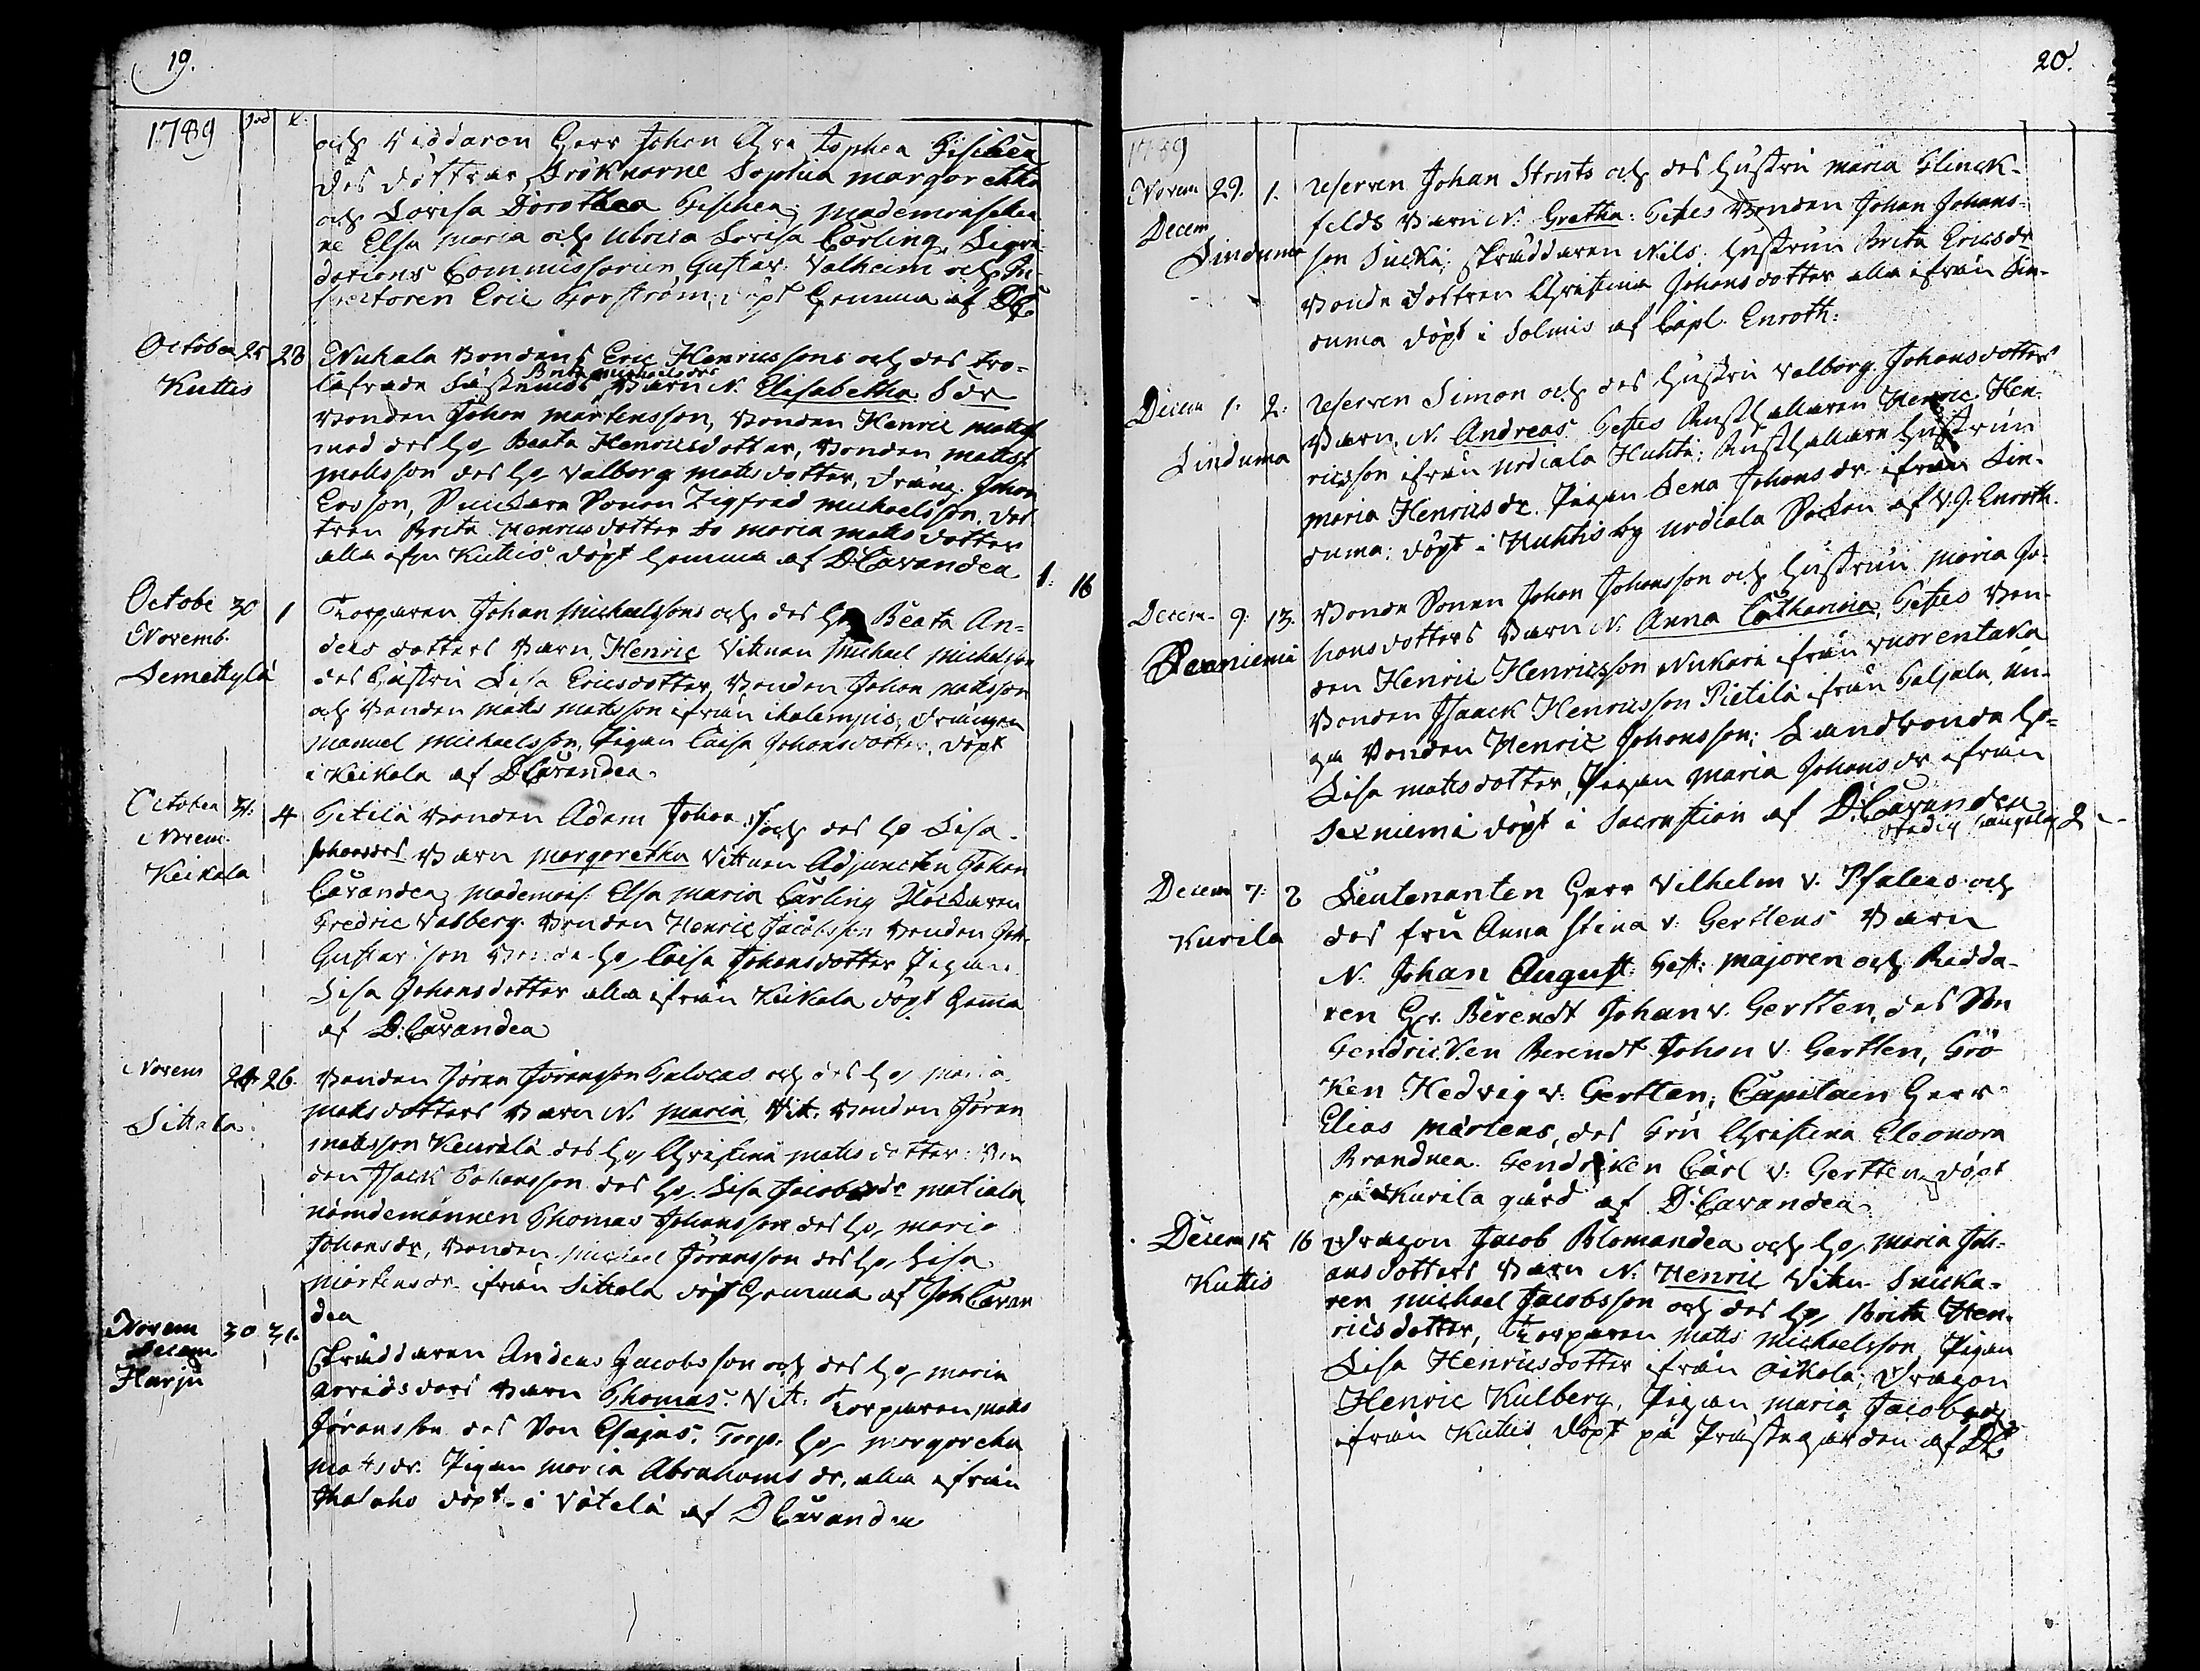 19.
1789 född
och Riddaren Herr Johan Chri stopher Fischer
des döttrar Fröknarne Sophia Margaretha
och Lovisa Dorothea Fischer, Mademoiseller
ne Elsa Maria och Ulrica Lovisa Carling, Liqvi
dations Commissarien Gustav Valheim och In-
spectoren Eric Forström, döpt hemma af
October 25 28 Nukala Bondens Eric Henricssons och des tro-
Kuttis
Brita Michaelsdrs
låfvade Fästemös Barn N. Elisabetha
Bonden Johan Mårtensson, Bonden Henric Matss
med des Ho Beata Henricsdotter, Bonden Matts
Matsson des Ho Valborg Matsdotter, Dräng Johan
Ersson, Snickare Sonen Zigfred Michaelsson,
Brita Henricsdotter Maria Matsdotter
alla ifrn Kuttis döpt hemma af D Cavander
1: 16
Octobr 30 1
Novemb.
Semettylä
Torparen Johan Michaelssons och des Ho Beata An-
ders dotters Barn, Henric Vittnen Michael Michelsson
des Hustru Lisa Ericsdotter, Bonden Johan Matsson
och Bonden Mats Matsson ifrån Drängen
Manuel Michaelsson, Pigan Caisa Johansdotter, döpt
i Keikala af D Cavander.
October 31: 4
Novem.
Keikala
Bonden Adam och des Ho Lisa
Johansdrs Barn Margaretha Vittnen Adjuncten Johan
Cavander, Mademois. Elsa Maria Carling Klockaren
Fredric Valberg Bonden Henric Jacobsson Bonden Joh.
Gustavsson Bonde Ho Caisa Johansdotter Pigan
Lisa Johansdotter alla ifrån Keikala döpt hemma
af D: Cavander
Novem 24 26.
Sittala
Bonden Jöran Göransson och des Ho Maria
Matsdotters Barn N. Maria, Vit: Bonden Jöran
Matsson Keurälä des Ho Christina Matsdotter: Bon
den Isack Johansson des Ho Lisa Jacobsdr
nämdemannen Thomas Johansson des Ho, Maria
Johansdr, Bonden Michael Jöransson des Ho, Lisa
Mårtensdr. ifrån Sittala döpt hemma af Joh Cavan
der
Novem 30 31.
Decem
Harju
Skräddaren Anders Jacobsson och des Ho, Maria
Arvidsdors Barn Thomas. Vitt. Torparen Mats
Jöransson des Son Esajas, Torp. Ho Margareta
Matsdr. Pigan Maria Abrahams dr. alla ifrån
döpt i Vätelä af D Cavander
20.
1789
Novem 29. 1.
Decem
Sinduma
Reserven Johan Struts och des Hustru Maria Klinck-
felds Barn N. Gretha: Testes Bonden Johan Johans-
son Sucki; Skräddaren Nils, Hustrun Brita Ericsdr
Bonde dottren Christina Johansdotter alla ifrån Sin-
duma döpt i Solmis af Capl. Enroth.
Decem 1. 2.
Sinduma
Reserven Simon och des Hustru Valborg Johansdotters
Barn, N. Andreas Testes Rusthållaren Henric Hen-
ricsson ifrån Urdiala Huhti; Rusthållare Hustrun
Maria Henricsdr. Pigan Lena Johansdr. ifrån Sin-
duma; döpt i Huhtis by Urdiala Socken af V.G. Enroth.
Decem. 9. 13.
Bonde Sonen Johan Johansson och Hustrun Maria Jo-
hansdotters Barn N. Anna Catharina, Testes Bon-
den Henric Henricsson Nukari ifrån Vuorentaka
Bonden Isaack Henricsson Pietilä ifrån Haljala, un-
ga Bonden Henric Johansson; Landbonde Ho-
Lisa Matsdotter, Pigan Maria Johansdr ifrån
Sexniemi döpt i Sacrastian af D: Cavander
Decem 7. 8
Kurila
Lieutenanten Herr Vilhelm v. Pfaler och
des fru Anna Stina v. Gertten Barn
N. Johan August. Test: Majoren och Ridda-
ren Hr. Berendt Johan v. Gertten, des Son
Fendricken Berendt Johan v. Gertten, Frö
ken Hedvig v. Gertten, Capitain Herr
Elias Mårtens, des Fru Christina Eleonora
Fendricken Carl v. Gertten, döpt
på Kurila gård af D. Cavander
Decem 15 16
Kuttis
Dragon Jacob Blomander och Ho, Maria Joh-
ansdotters Barn N. Henric Vitn. Snicka-
ren Michael Jacobsson och des Ho, Brita Hen-
ricsdotter, Torparen Mats Michaelsson, Pigan
Lisa Henricsdotter ifrån Oikola; Dragon
Henric Kulberg, Pigan Maria Jacobsdr
ifrån Kuttis döpt på Prästegården af DC